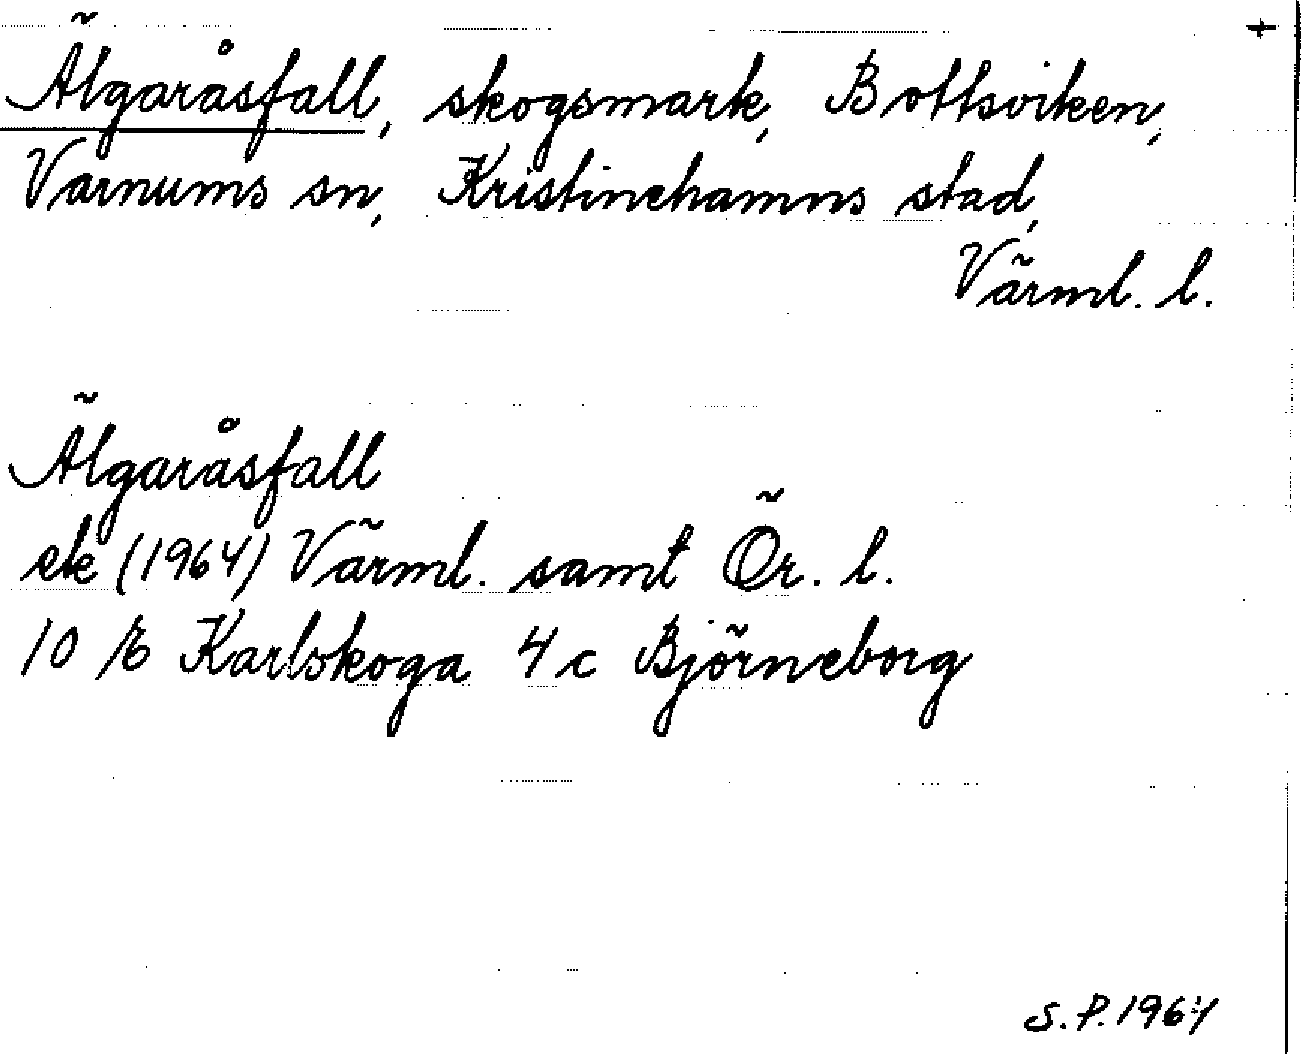 +
Älgaråsfall, skogsmark, Bottsviken,
Varnums sn, Kristinehamns stad,
Värml. l.
Älgaråsfall
ek (1964) Värml. samt Ör. l.
10 E Karlskoga 4 c Björneborg
S.P. 1967